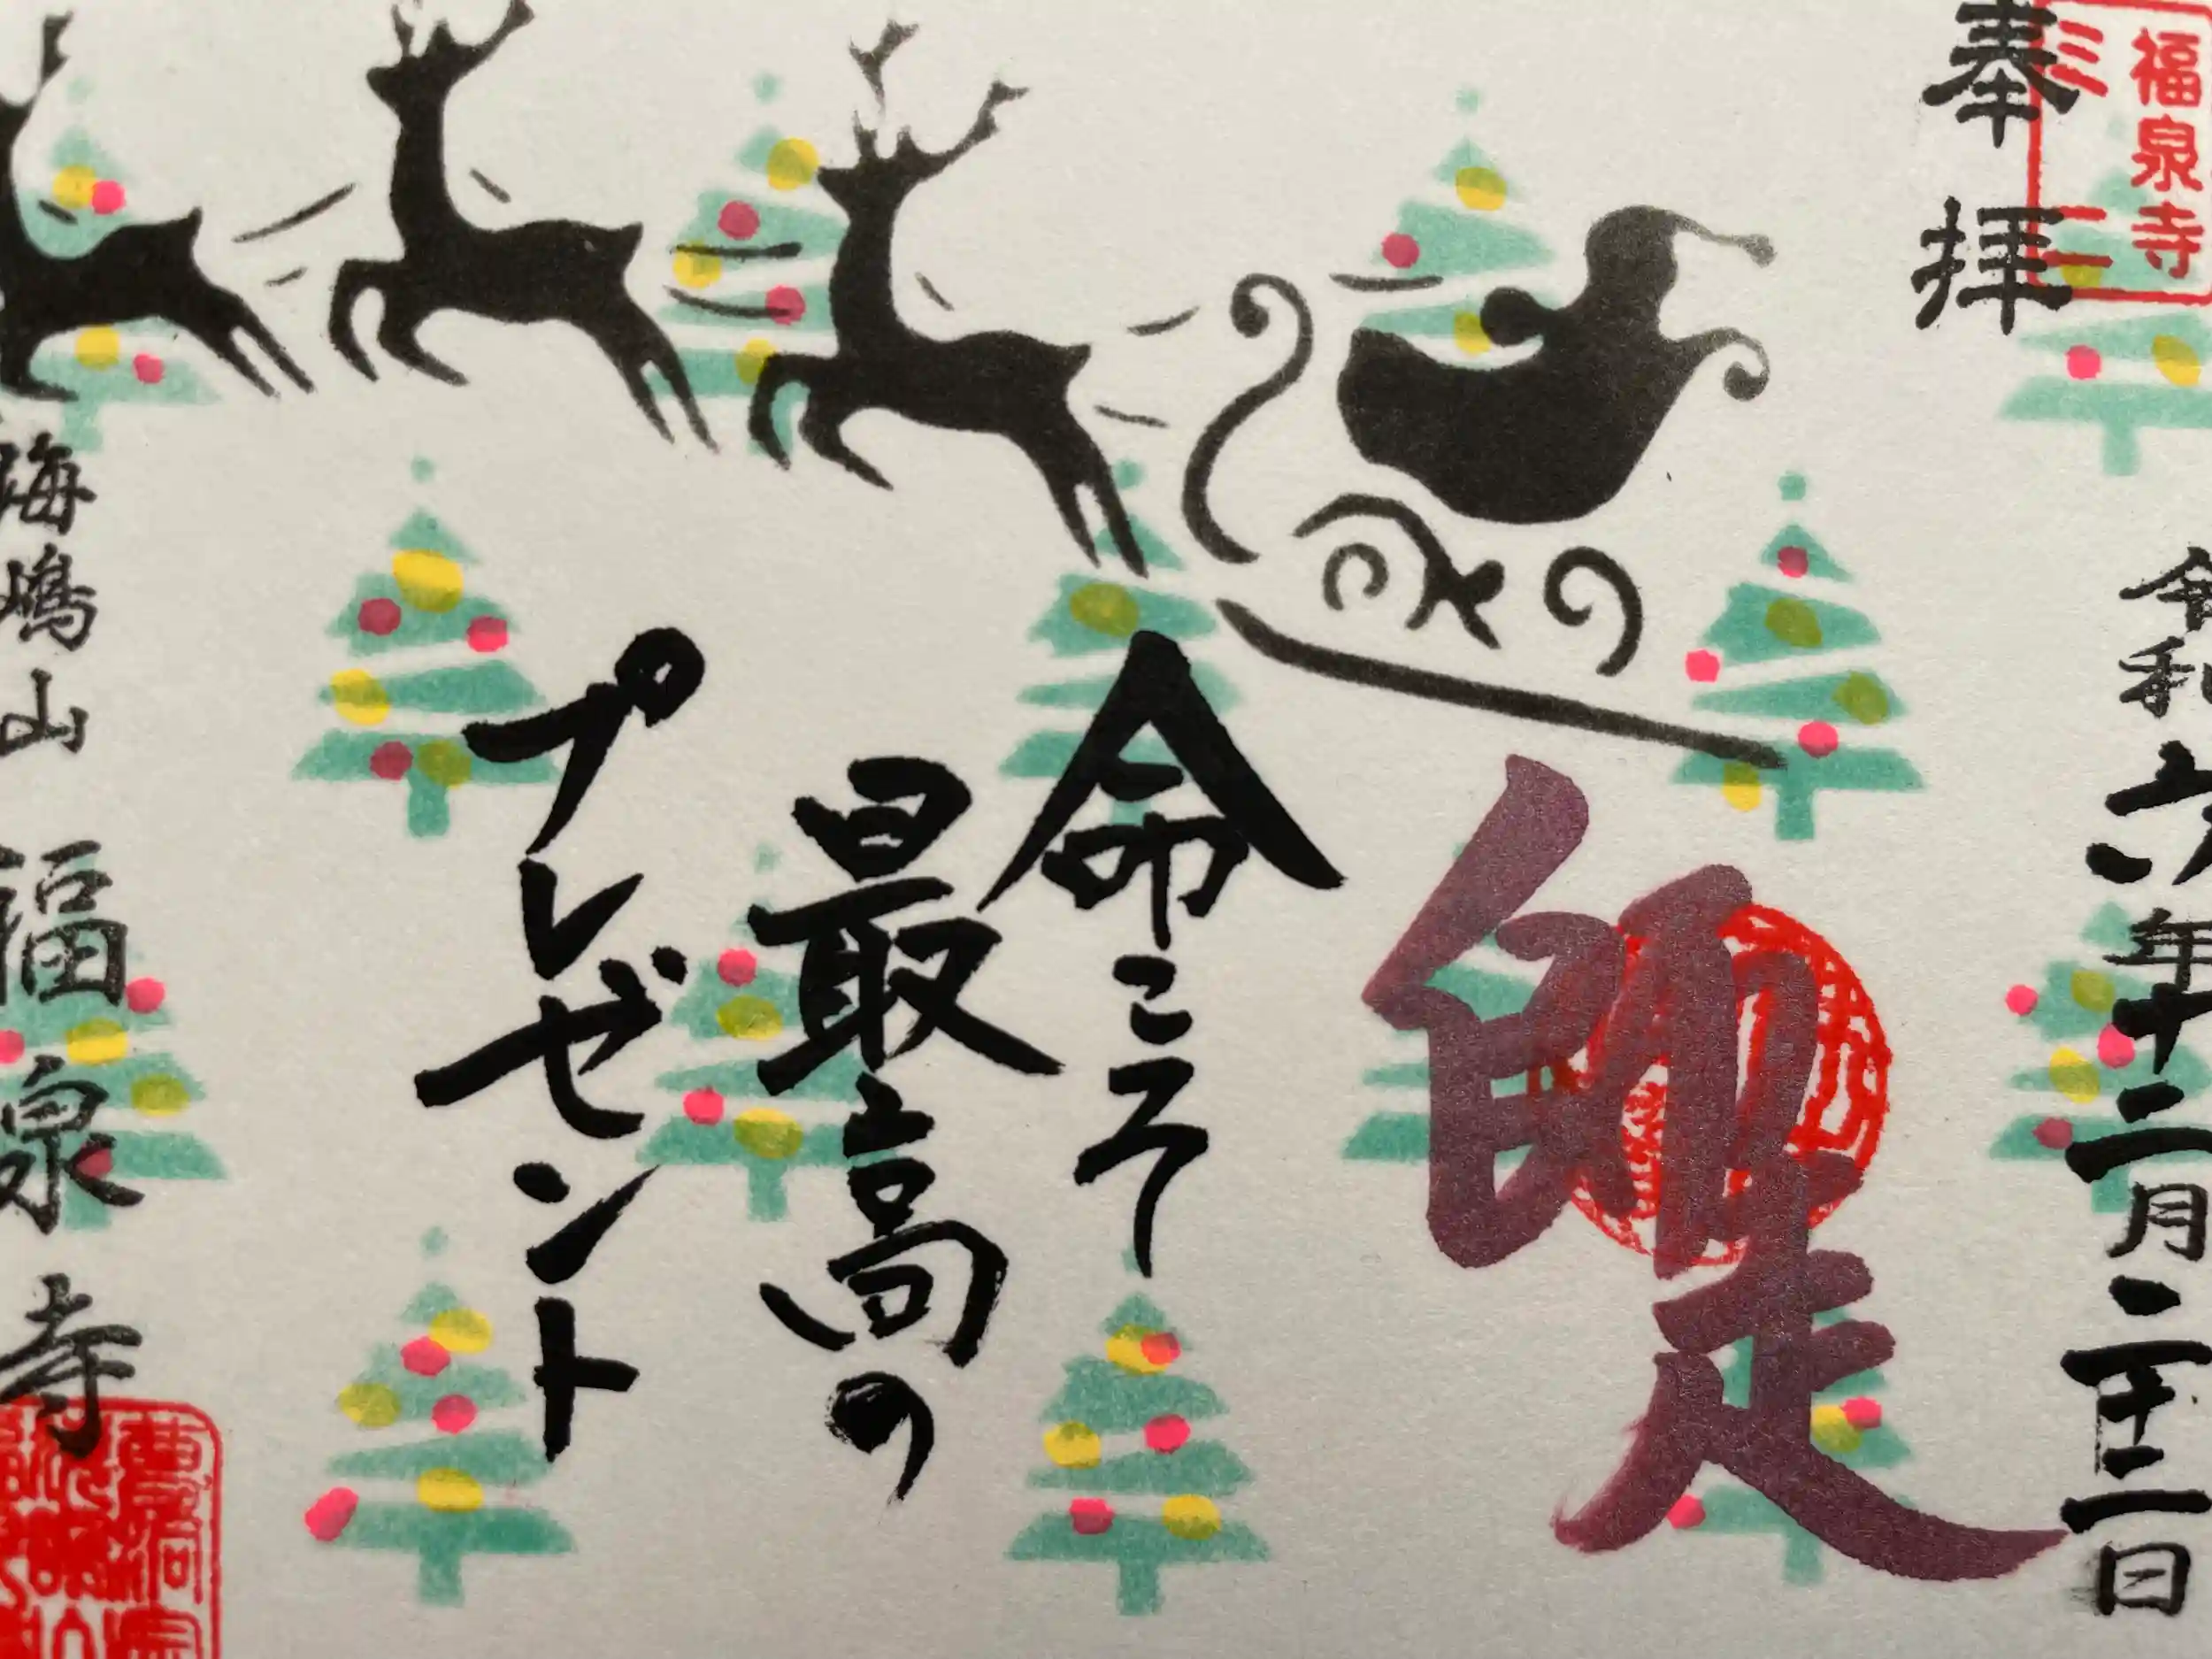 福泉寺
奉拝
令和六年十二月二十二日
師走
命こそ
最高の
プレゼント
海嶋山 福泉寺